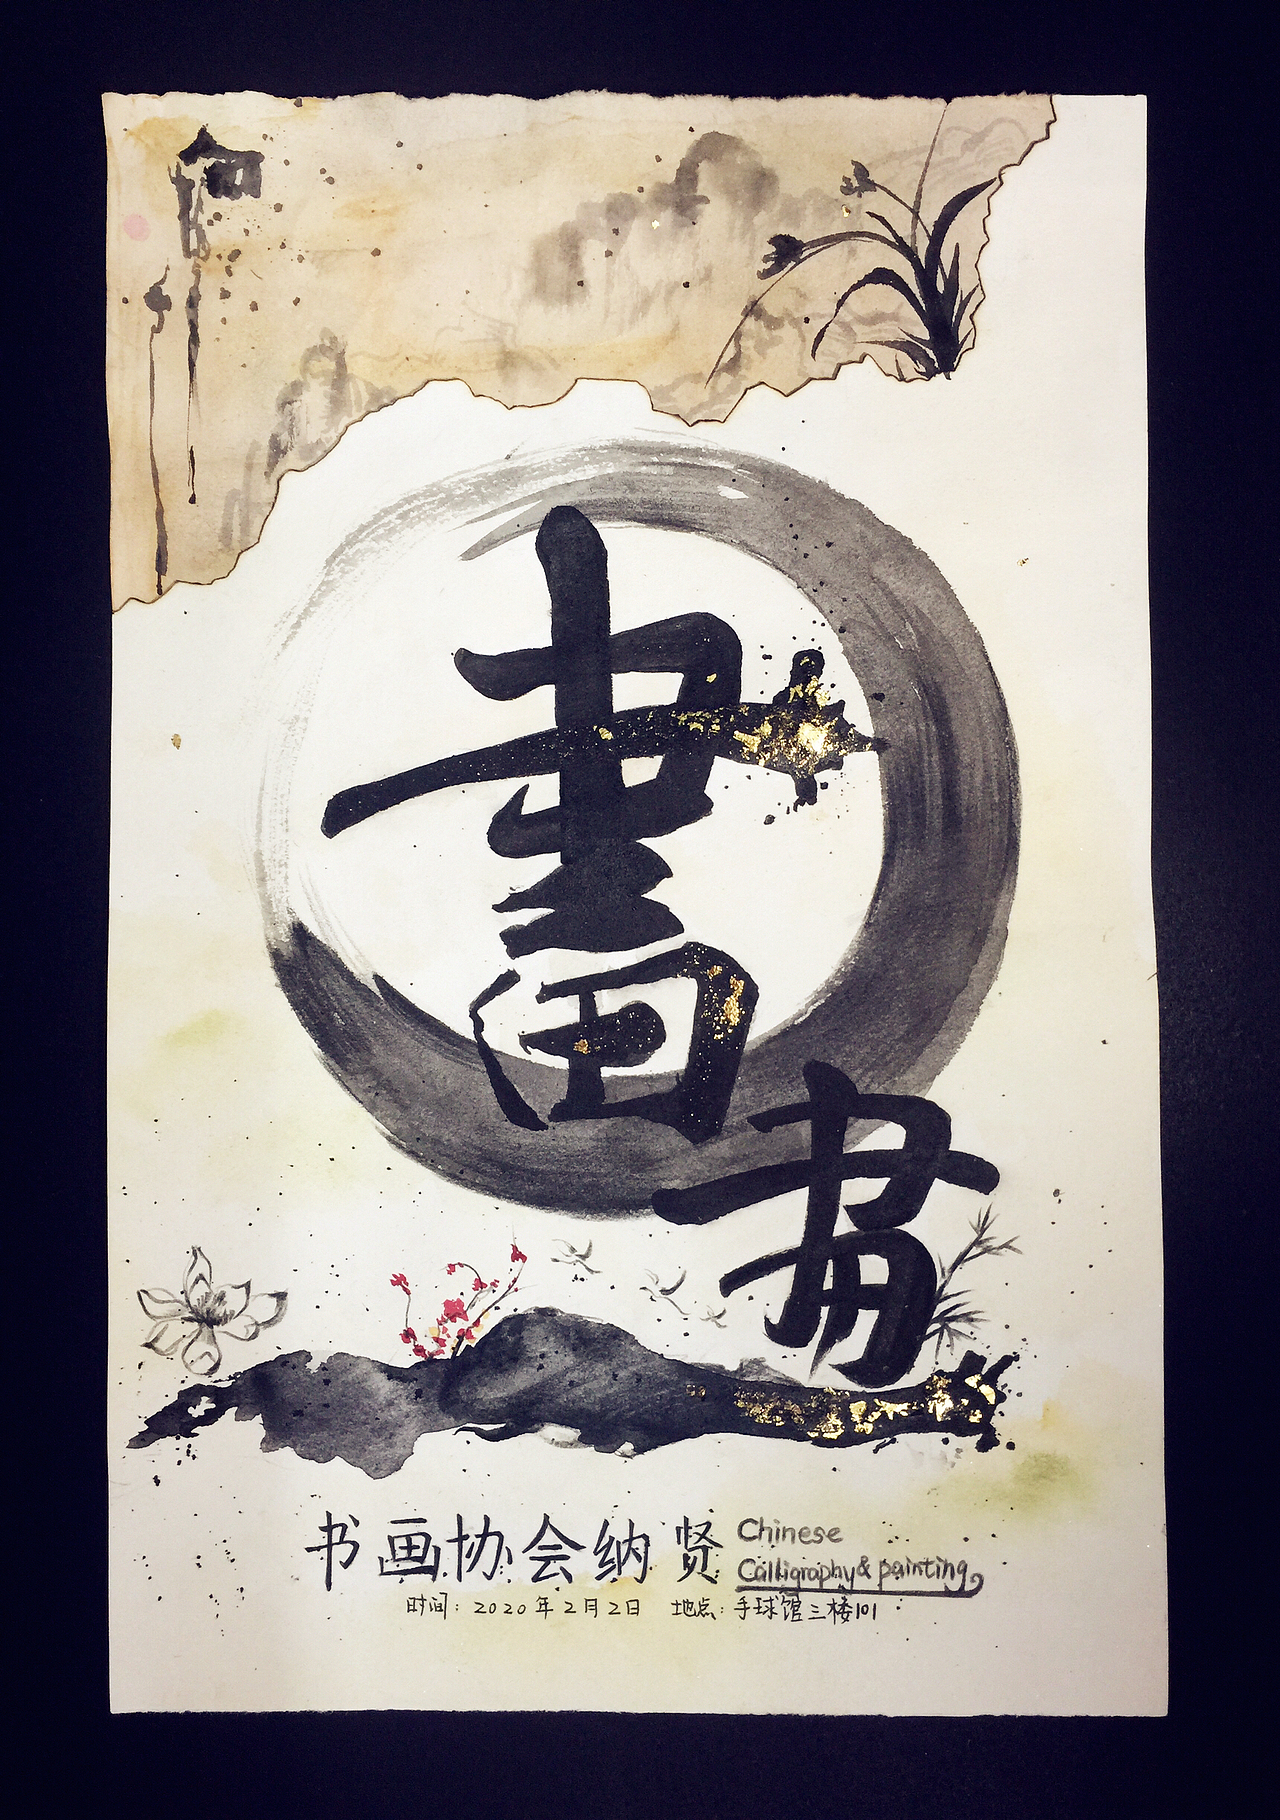 書
畫
书画协会纳贤 Chinese
Calligraphy & painting
时间：2020年2月2日 地点：手球馆三楼101